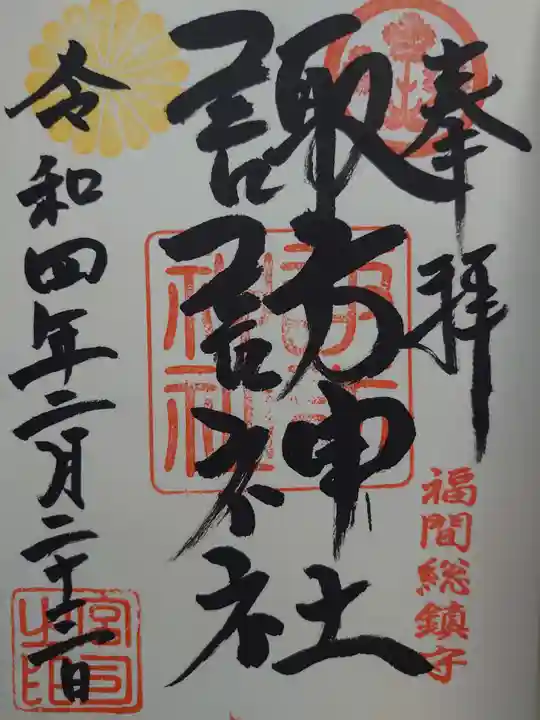 奉拝
福間総鎮守
諏訪神社
令和四年二月二十三日
宮司之印